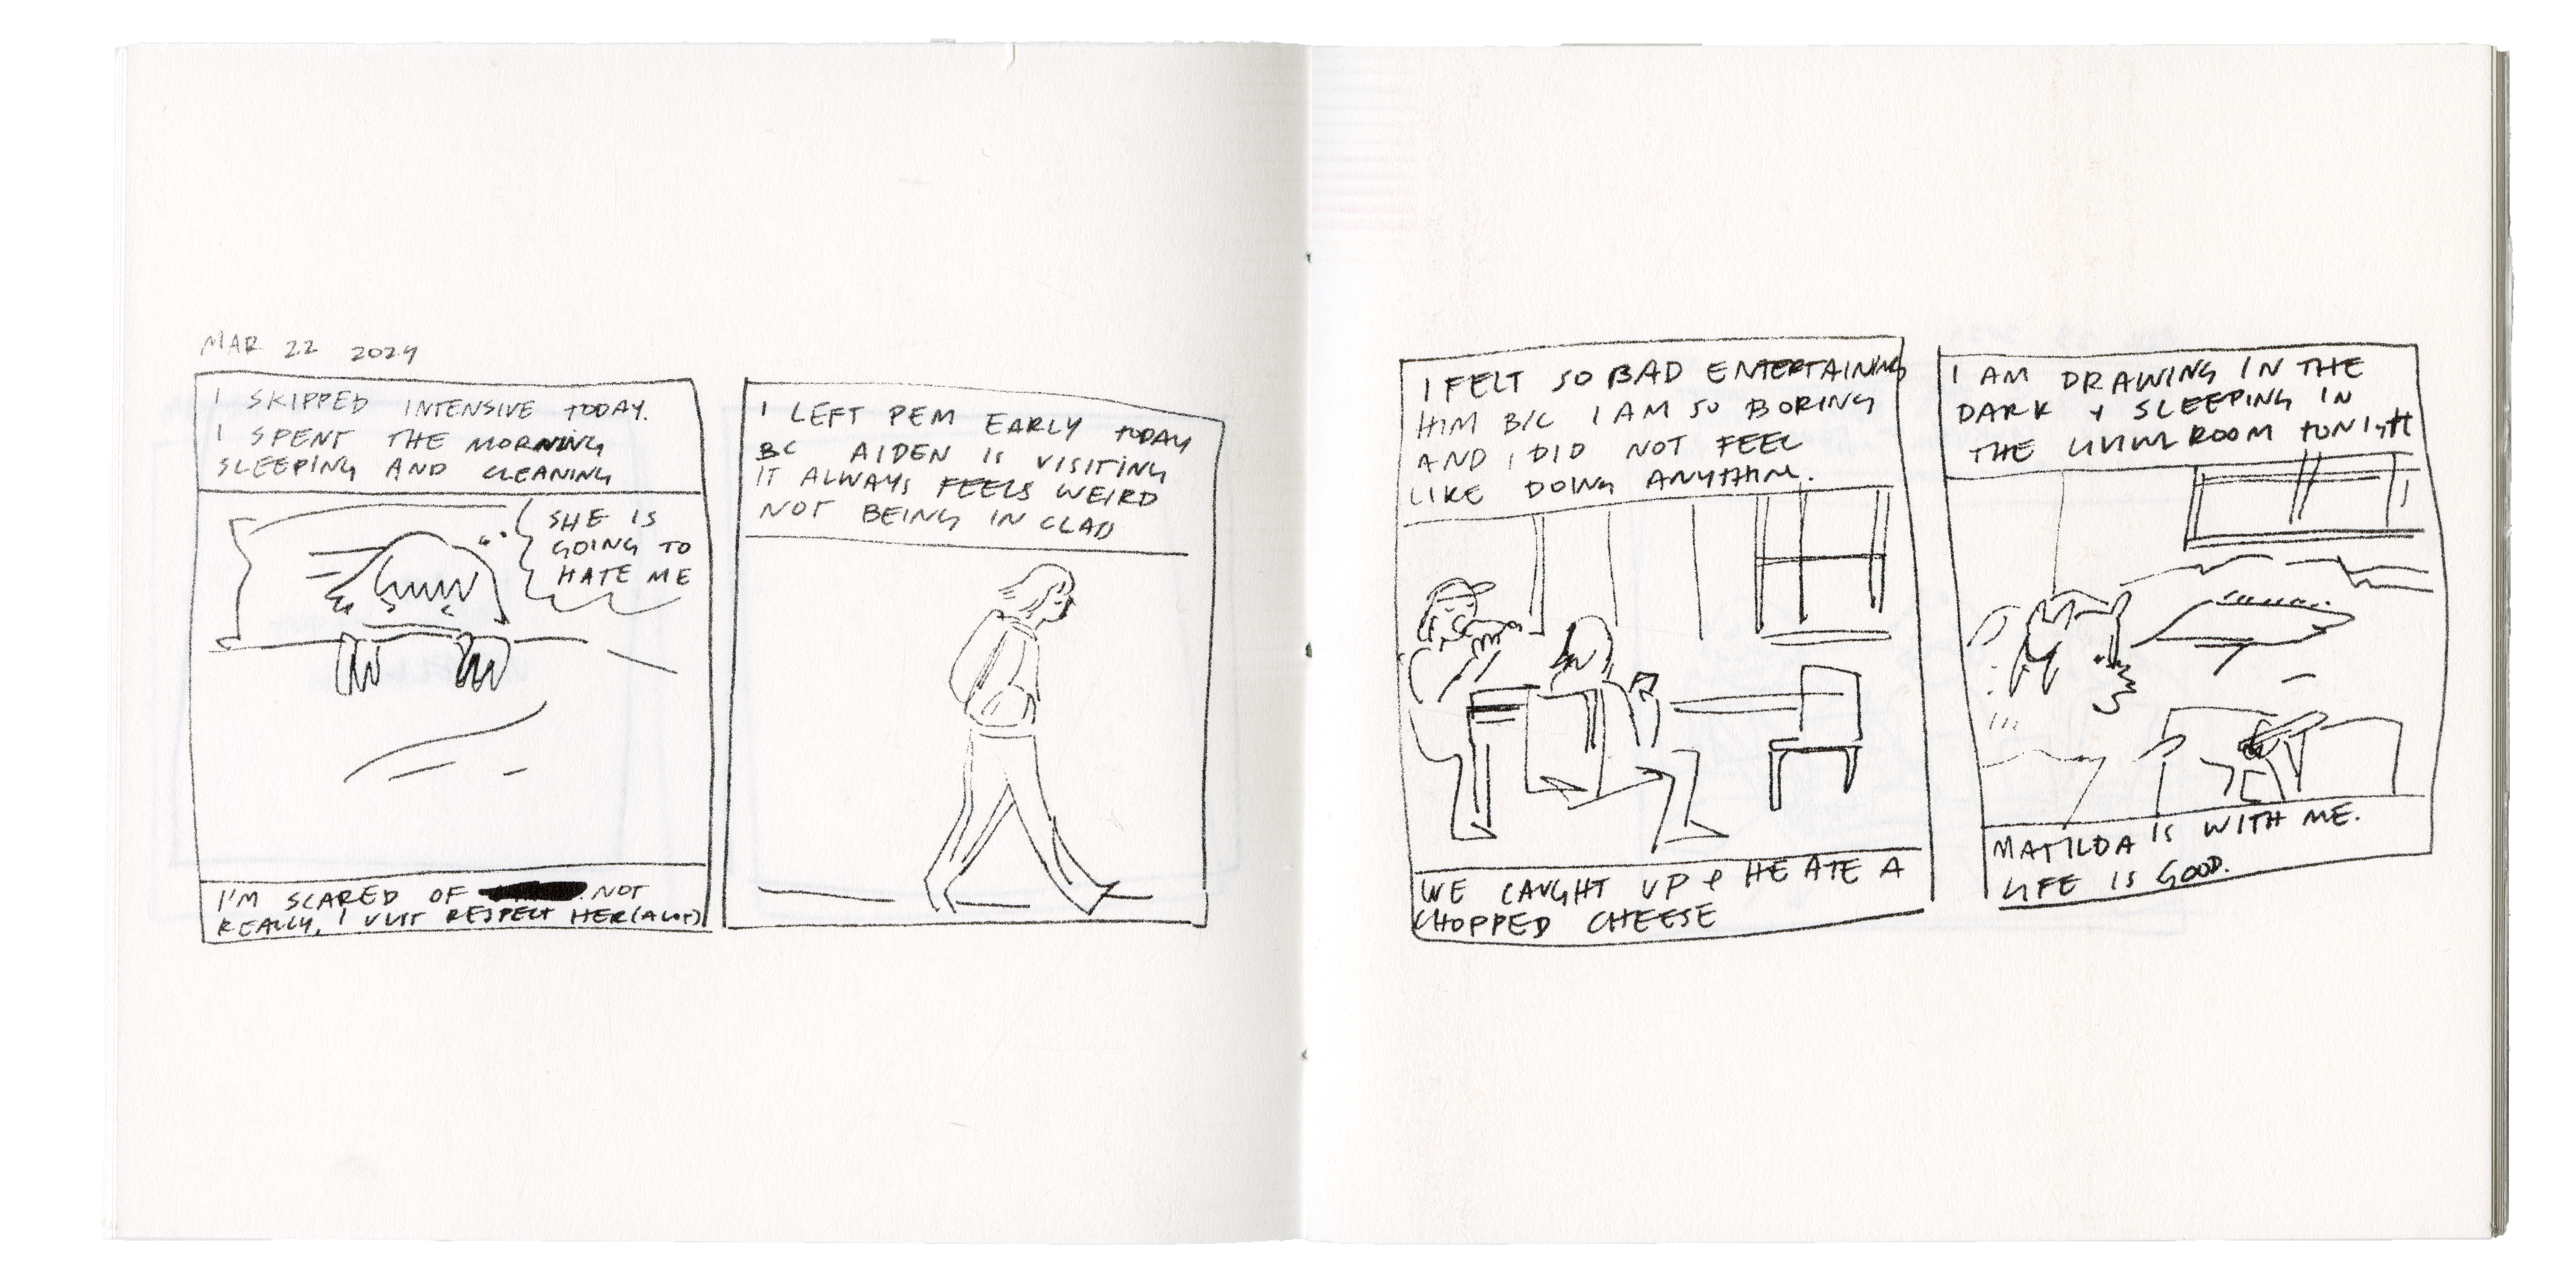 MAR 22 2024
I SKIPPED INTENSIVE TODAY.
I SPENT THE MORNING
SLEEPING AND CLEANING
SHE IS
GOING TO
HATE ME
I'M SCARED OF NOT
REALLY, I JUST RESPECT HER (A LOT)
I LEFT PEM EARLY TODAY
BC AIDEN IS VISITING
IT ALWAYS FEELS WEIRD
NOT BEING IN CLASS
I FELT SO BAD ENTERTAINING
HIM B/C I AM SO BORING
AND I DID NOT FEEL
LIKE DOING ANYTHING.
WE CAUGHT UP & HE ATE A
CHOPPED CHEESE
I AM DRAWING IN THE
DARK + SLEEPING IN
THE LIVING ROOM TONIGHT
MATILDA IS WITH ME.
LIFE IS GOOD.